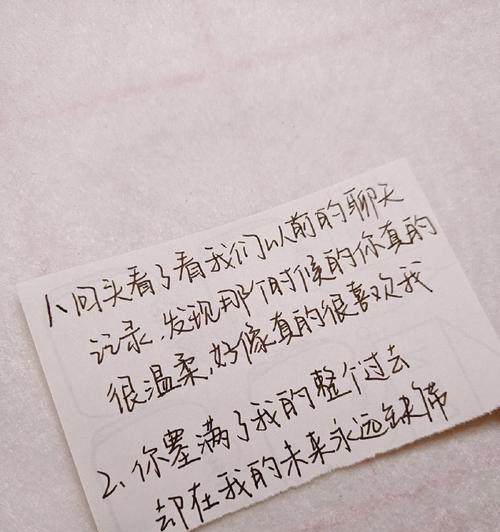 1、回头看了看我们以前的聊天
记录,发现那个时候的你真的
很温柔,好像真的很喜欢我
2、你塞满了我的整个过去
却在我的未来永远缺席